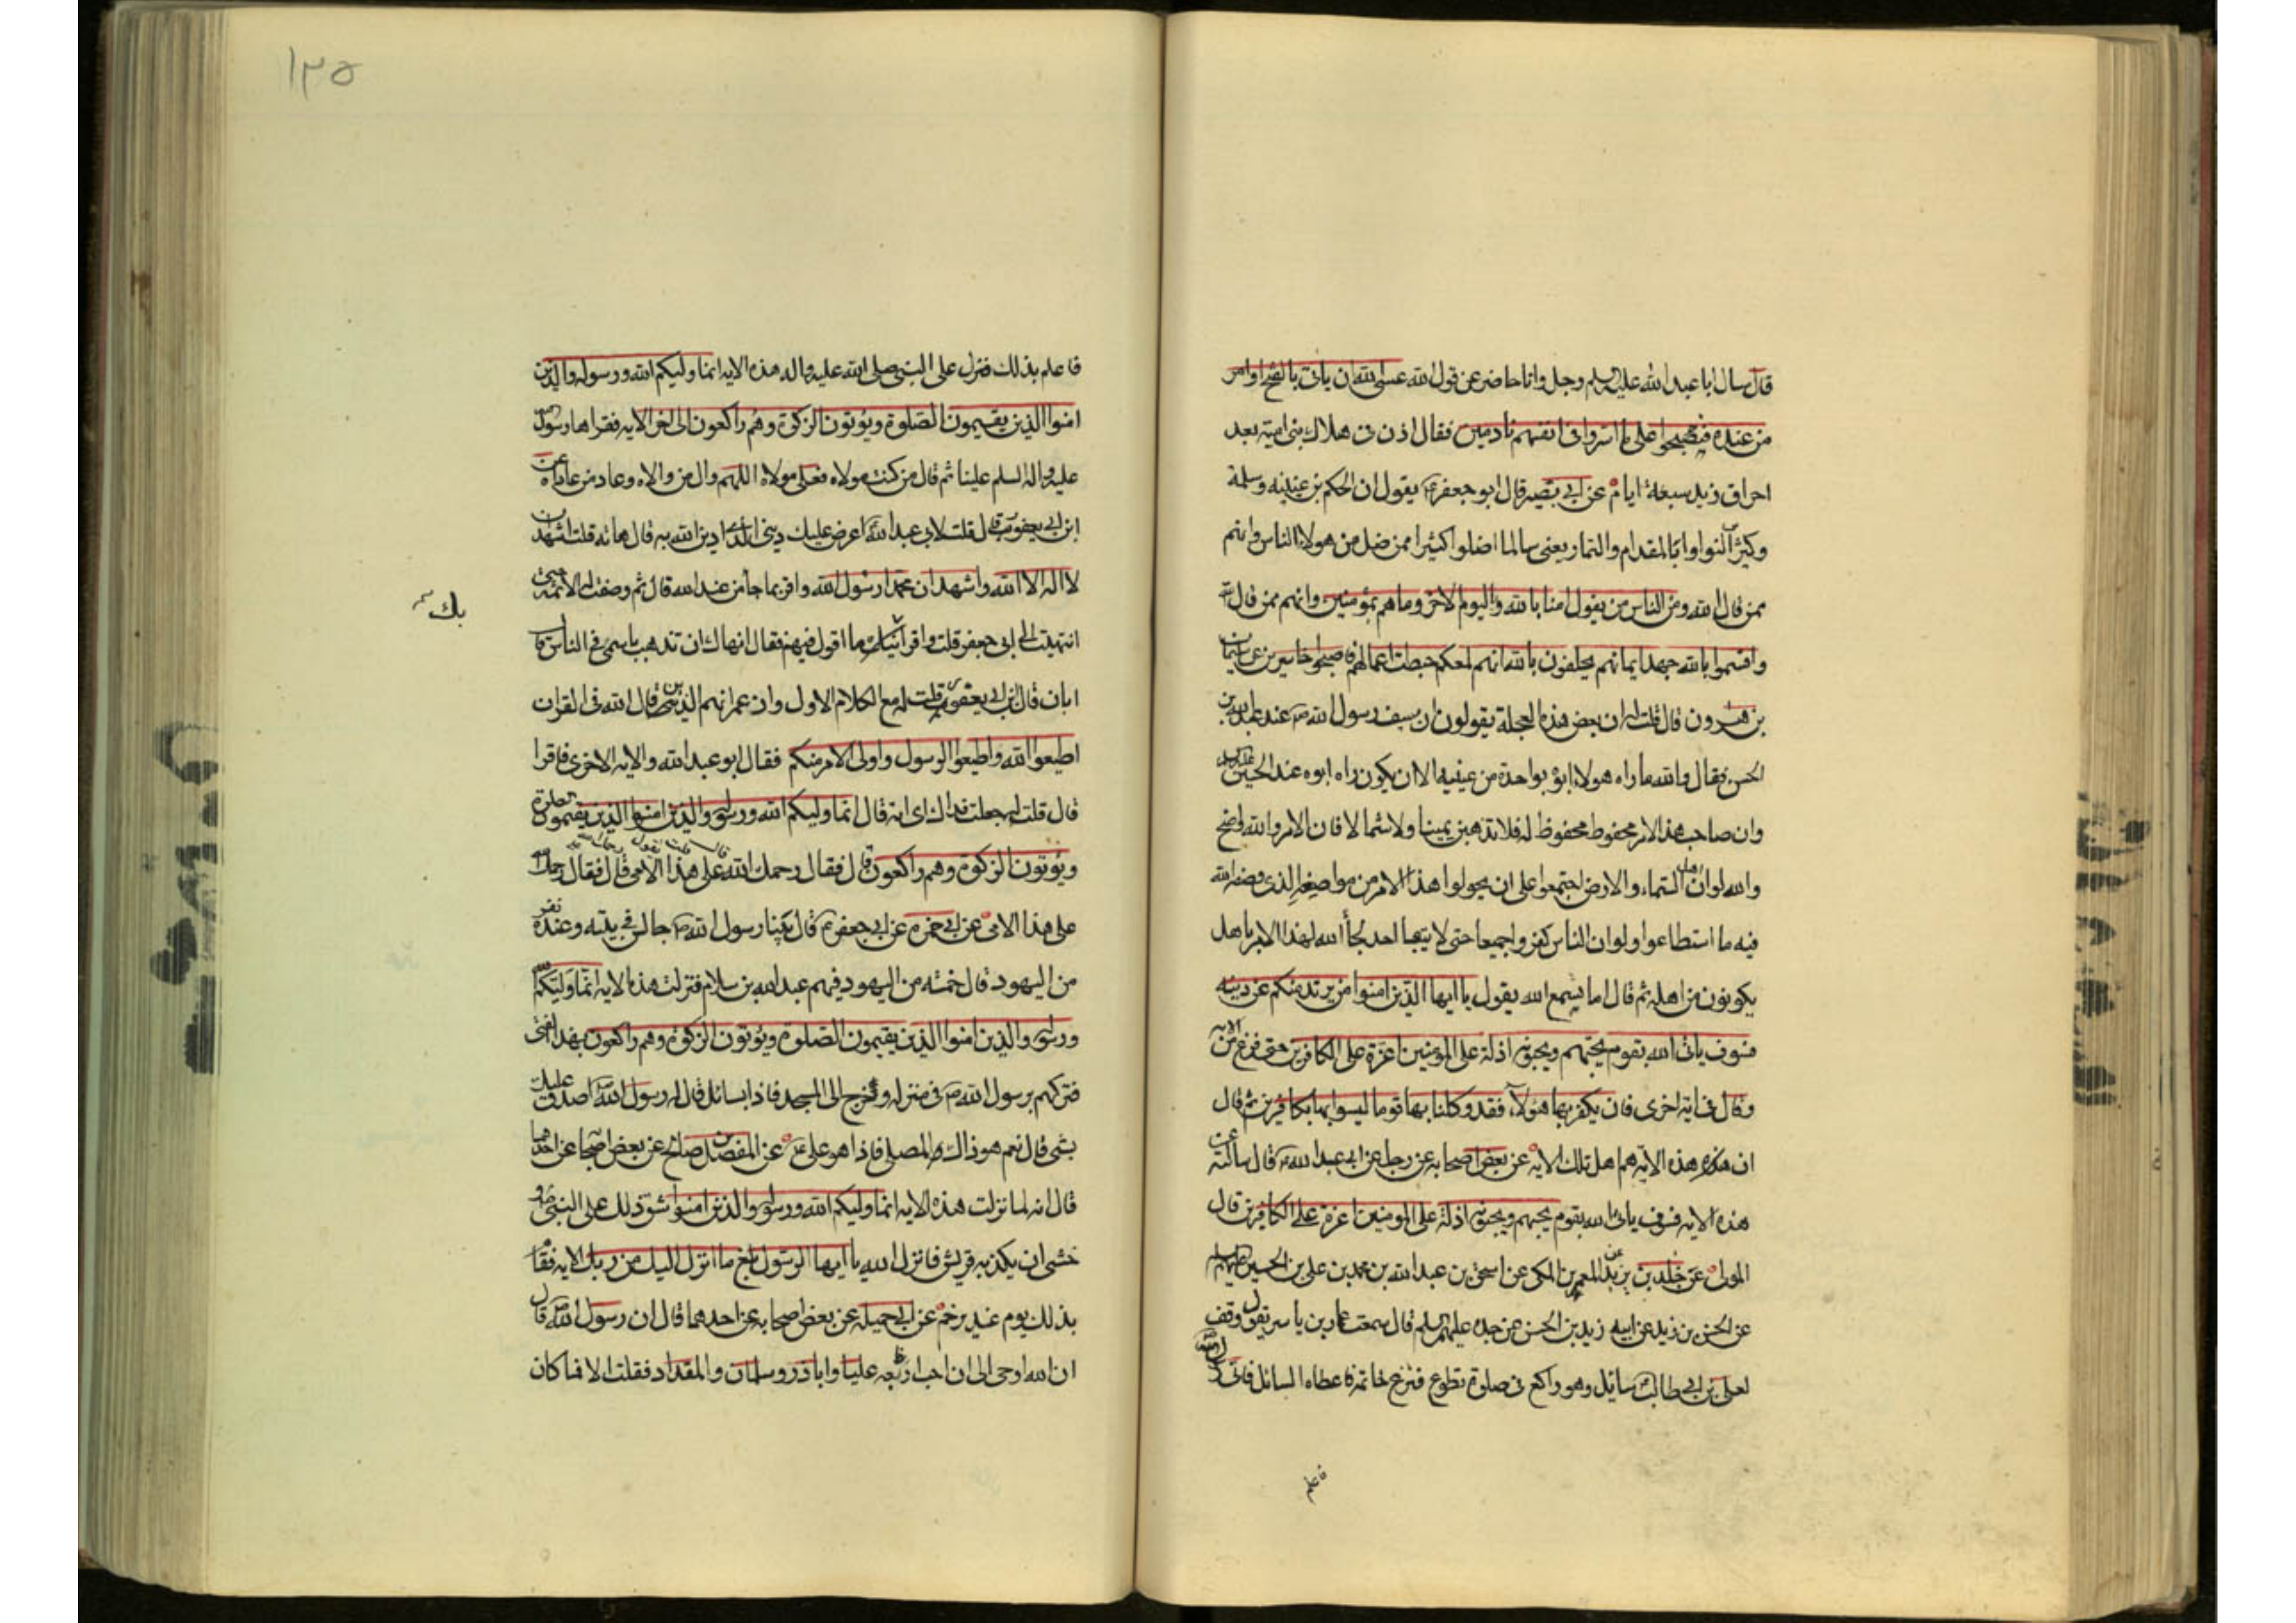 قال سال ابا عبد الله عليه السلم وجل وانا حاضر عن قول الله عسى الله ان ياتى بالفتح او امر
من عنده فيصبحوا على ما اسروا فى انفسهم نادمين فقال اذن فى هلاك بنى امية بعد
احراق زيد سبعة ايام عن ابى بصير قال ابو جعفر يقول ان الحكم بن عيينه وسلمة
وكثير النوا وابا المقدام والتمار يعنى سالما اضلوا كثيرا ممن ضل من هولاء الناس وانهم
ممن قال الله ومن الناس من يقول امنا بالله واليوم الاخر وما هم بمؤمنين وانهم ممن قال الله
واقسموا بالله جهد ايمانهم يحلفون بالله انهم لمعكم حبطت اعمالهم فاصبحوا خاسرين عن سليمان
بن هرون قال قلت له ان بعض هذه العجلة يقولون ان سيف رسول الله ص عند عبد الله بن
الحسن فقال والله ما راه هو ولا ابوه بواحدة من عينيه الا ان يكون راه ابوه عند الحسين
وان صاحب هذا الامر محفوظ محفوظ له فلا تذهبن يمينا ولا شمالا فان الامر والله واضح
والله لو ان اهل السماء والارض اجتمعوا على ان يحولوا هذا الامر من مواضعه الذى وضعه الله
فيه ما استطاعوا ولو ان الناس كفروا جميعا حتى لا يبقى احد لجأ الله لهذا الامر باهل
يكونون من اهله ثم قال اما تسمع الله يقول يا ايها الذين امنوا من يرتد منكم عن دينه
فسوف ياتى الله بقوم يحبهم ويحبونه اذلة على المؤمنين اعزة على الكافرين حتى فرغ من الايه
وقال فى اية اخرى فان يكفر بها هؤلاء فقد وكلنا بها قوما ليسوا بها بكافرين ثم قال
ان هذه الاية هم اهل تلك الاية عن بعض اصحابه عن رجل عن ابى عبد الله قال سالته عن
هذه الايه فسوف ياتى الله بقوم يحبهم ويحبونه اذلة على المومنين اعزة على الكافرين قال
الموالى عن خلد بن يزيد عن المعمر بن المكى عن اسحق بن عبد الله بن محمد بن على بن الحسين عليهم السلم
عن الحسن بن زيد عن ابيه زيد بن الحسن عن جده عليهم السلم قال سمعت عمار بن ياسر يقول وقف
لعلى بن ابى طالب سائل وهو راكع فى صلوة تطوع فنزع خاتمه فاعطاه السائل فاتى رسول الله
فاعلم
١٣٥
فاعلم بذلك فنزل على النبى صلى الله عليه واله هذه الايه انما وليكم الله ورسوله والذين
امنوا الذين يقيمون الصلوة ويؤتون الزكوة وهم راكعون الى اخر الايه فقراها رسول الله
عليه واله السلم علينا ثم قال من كنت مولاه فعلى مولاه اللهم وال من والاه وعاد من عاداه عن
ابن ابى يعفور قال قلت لابى عبد الله اعرض عليك دينى الذى ادين الله به قال هاته قلت اشهد ان
لا اله الا الله واشهد ان محمدا رسول الله واقر بما جاء من عند الله قال ثم وصفت له الائمة حتى
انتهيت الى ابى جعفر قلت واقر بك ما اقول فيهم فقال انهاك ان تذهب باسمى فى الناس قا
بك
ابان قال ابن ابى يعفور قلت له مع الكلام الاول وازعم انهم الذين قال الله فى القران
اطيعوا الله واطيعوا الرسول واولى الامر منكم فقال ابو عبد الله والايه الاخرى فاقرا
قال قلت له جعلت فداك اى ايه قال انما وليكم الله ورسوله والذين امنوا الذين يقيمون الصلوة
ويؤتون الزكوة وهم راكعون قال فقال رحمك الله قال قلت تقول رحمك الله على هذا الامر قال فقال رحمك الله
على هذا الامر عن ابى حمزه عن ابى جعفر قال بينا رسول الله ص جالس فى بيته وعنده نفر
من اليهود قال خمسه من اليهود فيهم عبد الله بن سلام فنزلت هذه الايه انما وليكم الله
ورسوله والذين امنوا الذين يقيمون الصلوة ويؤتون الزكوة وهم راكعون بهذا الفتى
فتركهم رسول الله ص فى منزله وخرج الى المسجد فاذا بسائل قال له رسول الله اصدق عليك
بشى قال نعم هو ذاك المصلى فاذا هو على عن المفضل بن صالح عن بعض اصحابه عن احدهما
قال انه لما نزلت هذه الايه انما وليكم الله ورسوله والذين امنوا شق ذلك على النبى ص و
خشى ان يكذبه قريش فانزل الله يا ايها الرسول بلغ ما انزل اليك من ربك الايه فقام
بذلك يوم غدير خم عن ابى جميله عن بعض اصحابه عن احدهما قال ان رسول الله قال
ان الله اوحى الى ان احب اربعه عليا واباذر وسلمان والمقداد فقلت الا فما كان